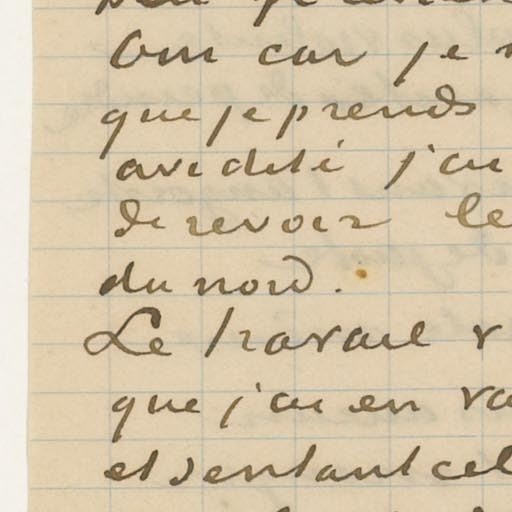 Oui car je
que je prends
avidité j'ai
de revoir le
du nord.
Le travail v
que j'ai en va
et sentant cel